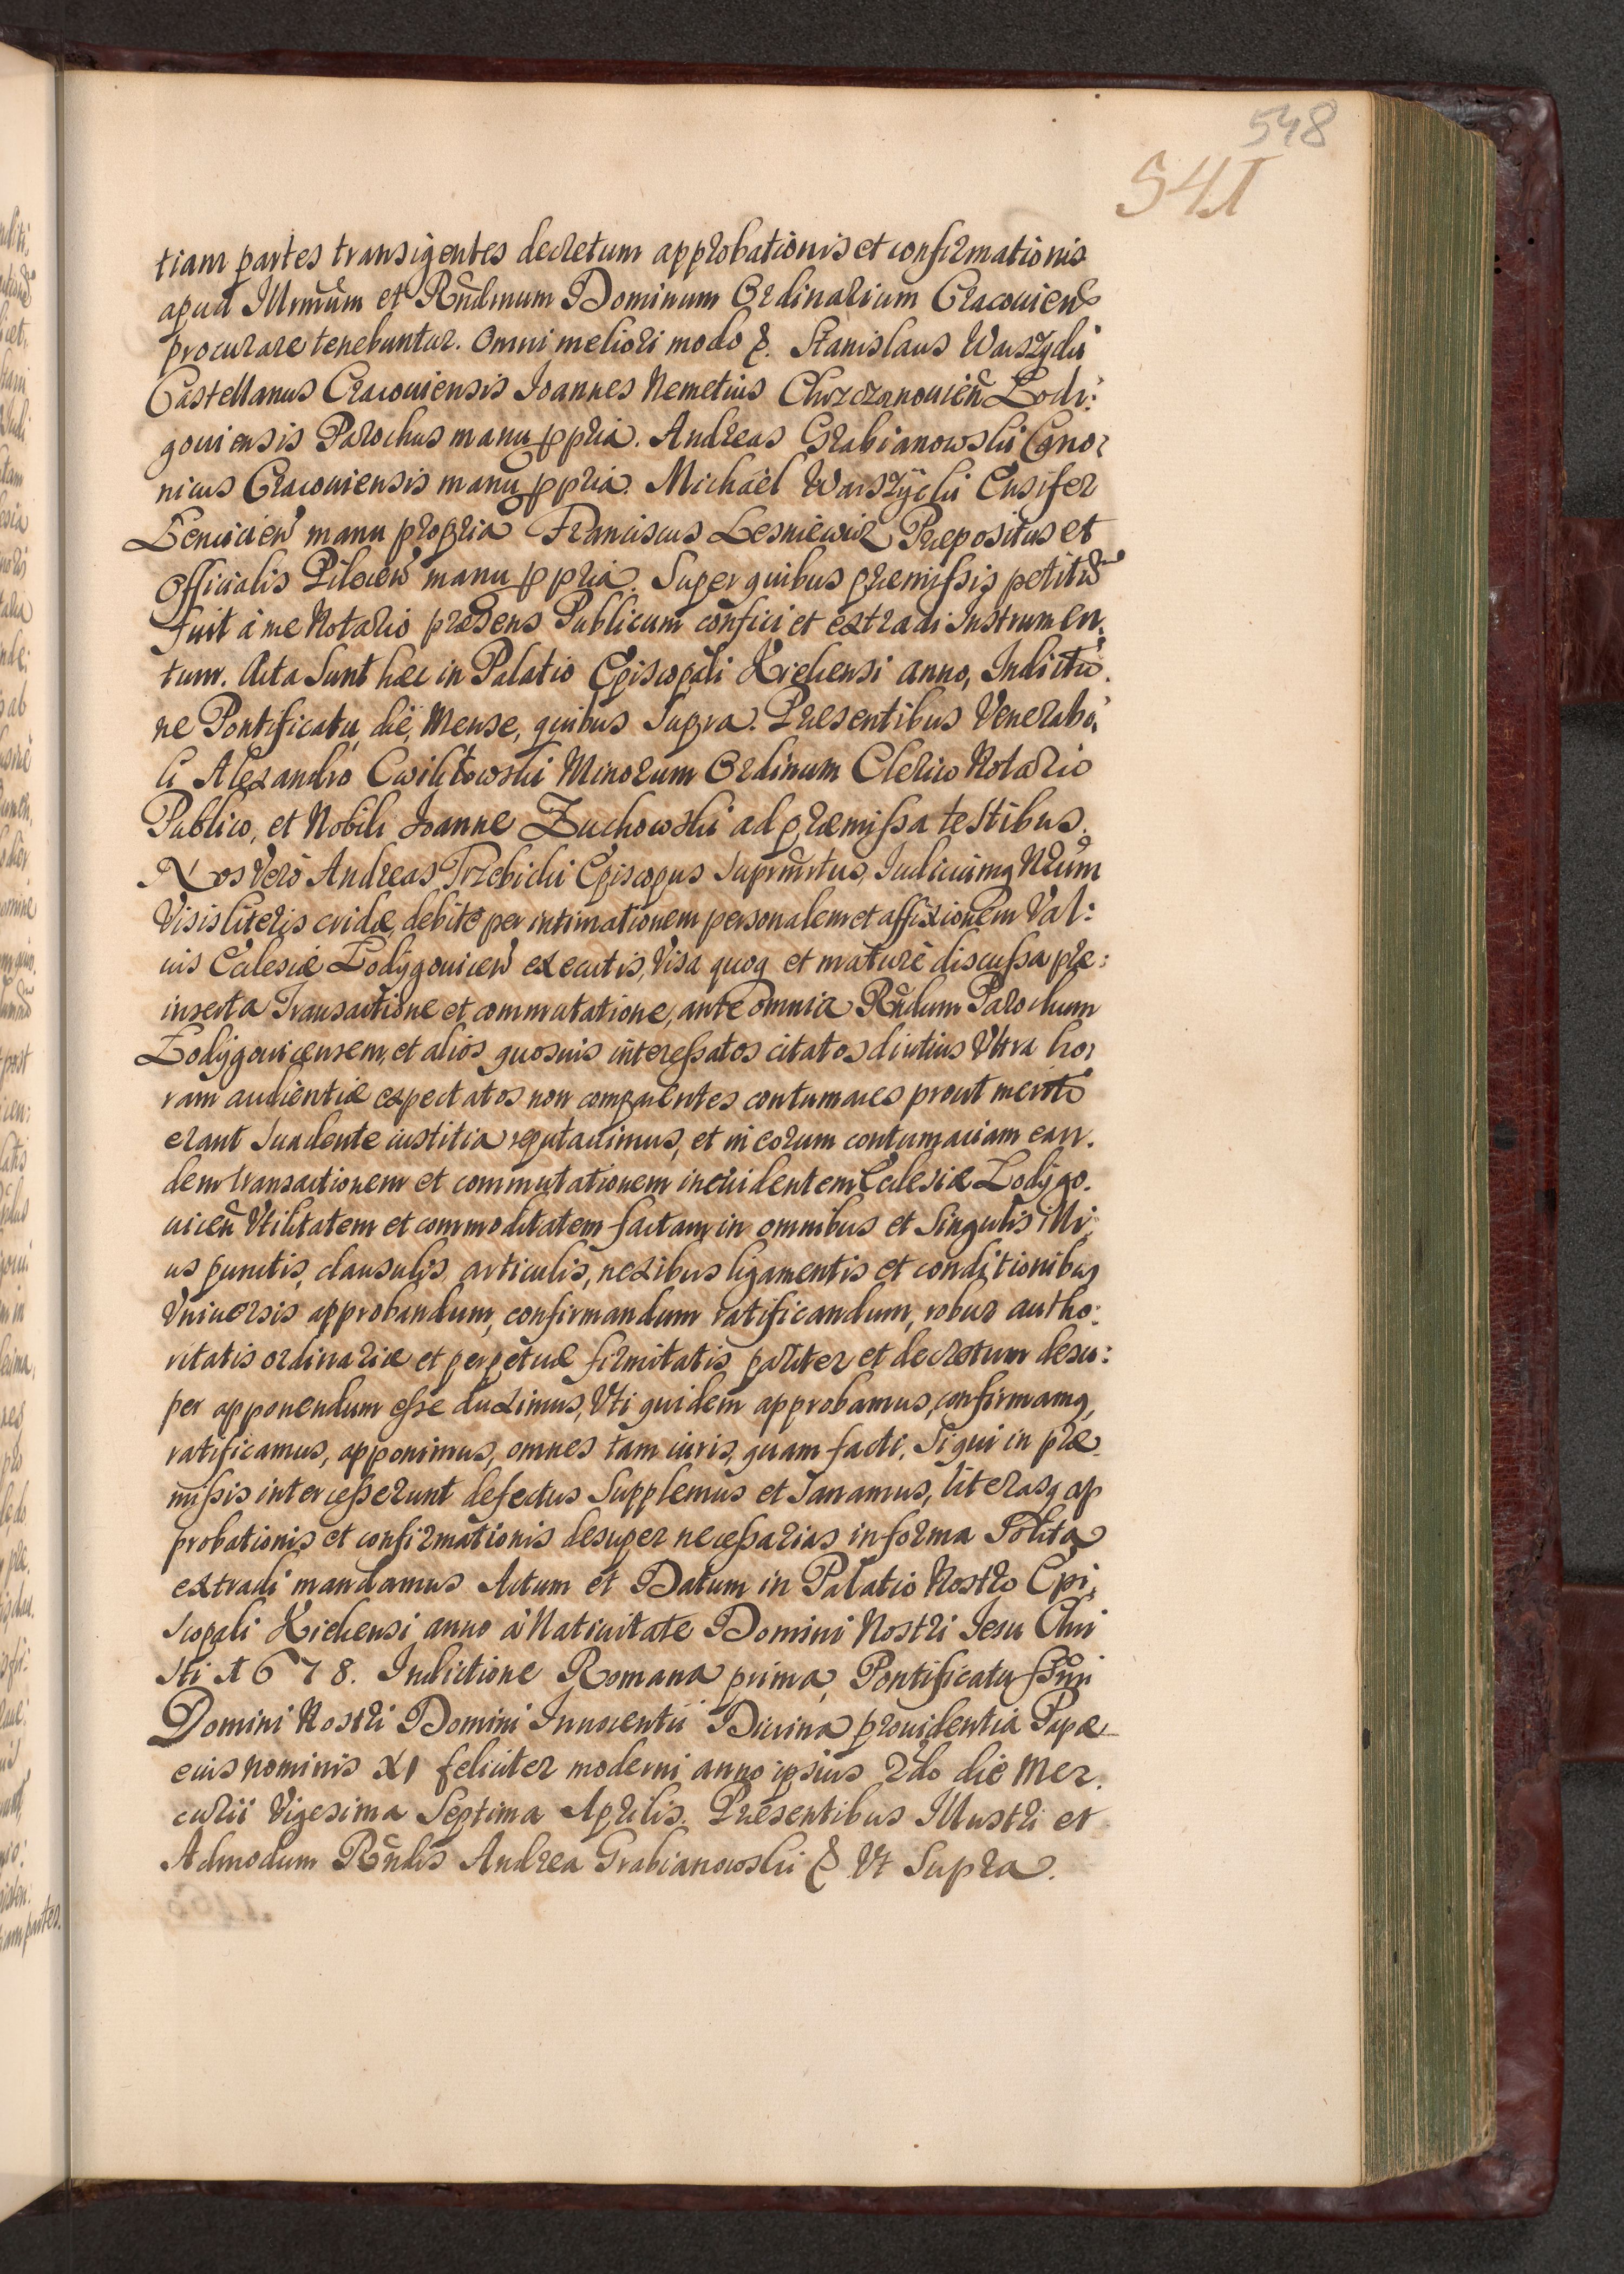 548
541
tiam partes transigentes decretum approbationis et confirmationis
apud Illmum et Rndmum Dominum Ordinarium Cracouien̄
procurare tenebuntur. Omni meliori modo &. Stanislaus Warszycki
Castellanus Cracouiensis Joannes Nemetius Chrzczanouien̄ Lodi:
gouiensis Parochus manu ppria. Andreas Grabianowski Cano:
nicus Cracouiensis manu ppria. Michaël Warszÿcki Ensifer
Lencicien̄ manu propria Franciscus Lesniewicz Præpositus et
Officialis Pilecien̄ manu ppria. Super quibus præmissis petitū
fuit à me Notario præsens Publicum confici et extradi Instrumen:
tum. Acta Sunt hæc in Palatio Episcopali Kielcensi anno, Indictio:
ne Pontificatu, die, Mense, quibus Supra. Præsentibus Venerabi:
li Alexandro Cwiklowski Minorum Ordinum Clerico Notario
Publico, et Nobili Joanne Zuchowski ad præmissa testibus.
Nos Verò Andreas Trzebicki Episcopus Suprmrtus, Iudiciumq Nrūm
Visis literis cridæ, debitè per intimationem personalem et affixionem Val:
uis Eclesiæ Lodygouicen̄ executis, Visa quoq et maturè discussa præ:
inserta Transactione et commutatione, ante omnia Rndum Parochum
Lodÿgouicensem, et alios quosuis interessatos citatos diutius Vltra ho:
ram audientiæ expectatos non comparentes contumaces prout merito
erant Suadente iustitia reputauimus, et in eorum contumaciam ean:
dem transactionem et commutationem in euidentem Eclesiæ Lodÿgo:
uicen̄ Vtilitatem et commoditatem factam, in omnibus et Singulis illi:
us punctis, clausulis, articulis, nexibus ligamentis et conditionibus
Vniuersis approbandum, confirmandum ratificandum, robur autho:
ritatis ordinariæ et perpetuæ firmitatis pariter et decretum desu:
per apponendum esse duximus, Vti quidem approbamus, confirmamq,
ratificamus, apponimus, omnes tam iuris, quam facti, Si qui in præ:
missis intercesserunt defectus Supplemus et Sanamus, literasq ap
probationis et confirmationis desuper necessarias in forma Solita
extradi mandamus Actum et Datum in Palatio Nostro Epi:
scopali Kielcensi anno à Natiuitate Domini Nostri Iesu Chri
sti 1678. Indictione Romana prima, Pontificatu SSmi
Domini Nostri Domini Innocentii Diuina prouidentia Papæ
eius nominis XI feliciter moderni anno ipsius 2do die Mer:
curii Vigesima Septima Aprilis. Præsentibus Illustri et
Admodum Rndis Andrea Grabianowski & Vt Supra.